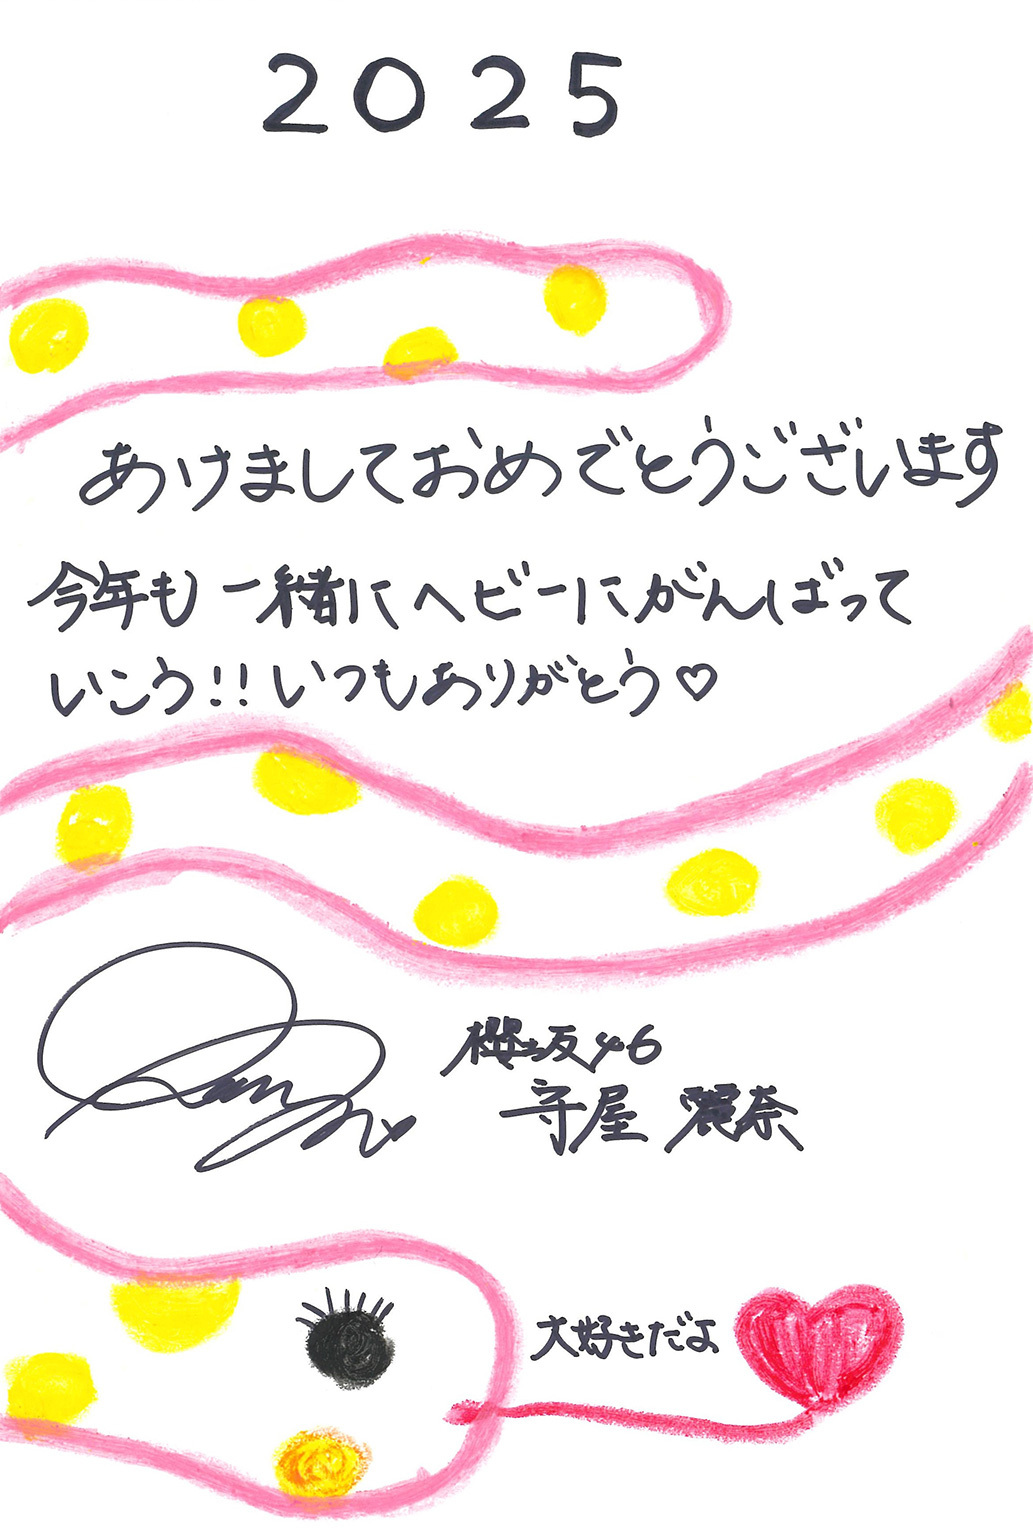 2025
あけましておめでとうございます
今年も一緒にヘビーにがんばって
いこう!!いつもありがとう♡
櫻坂46
守屋 麗奈
大好きだよ